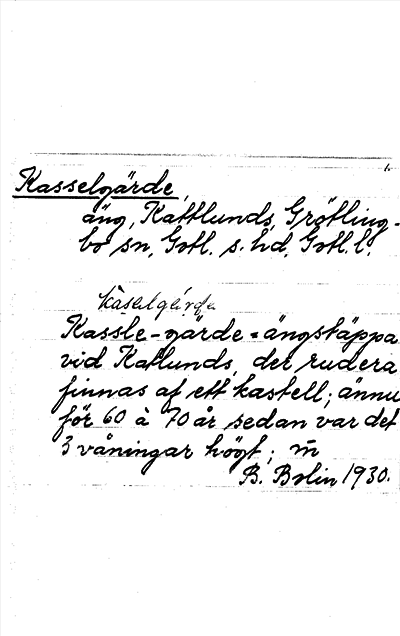 Kasselgärde,
äng, Kattlunds, Grötling-
bo sn, Gotl. s. hd, Gotl. l.
kasalgärde
Kassle-gärde = ängstäppa
vid Katlunds, der rudera
finnas af ett kastell; ännu
för 60 à 70 år sedan var det
3 våningar högt; m
B. Bolin 1930.